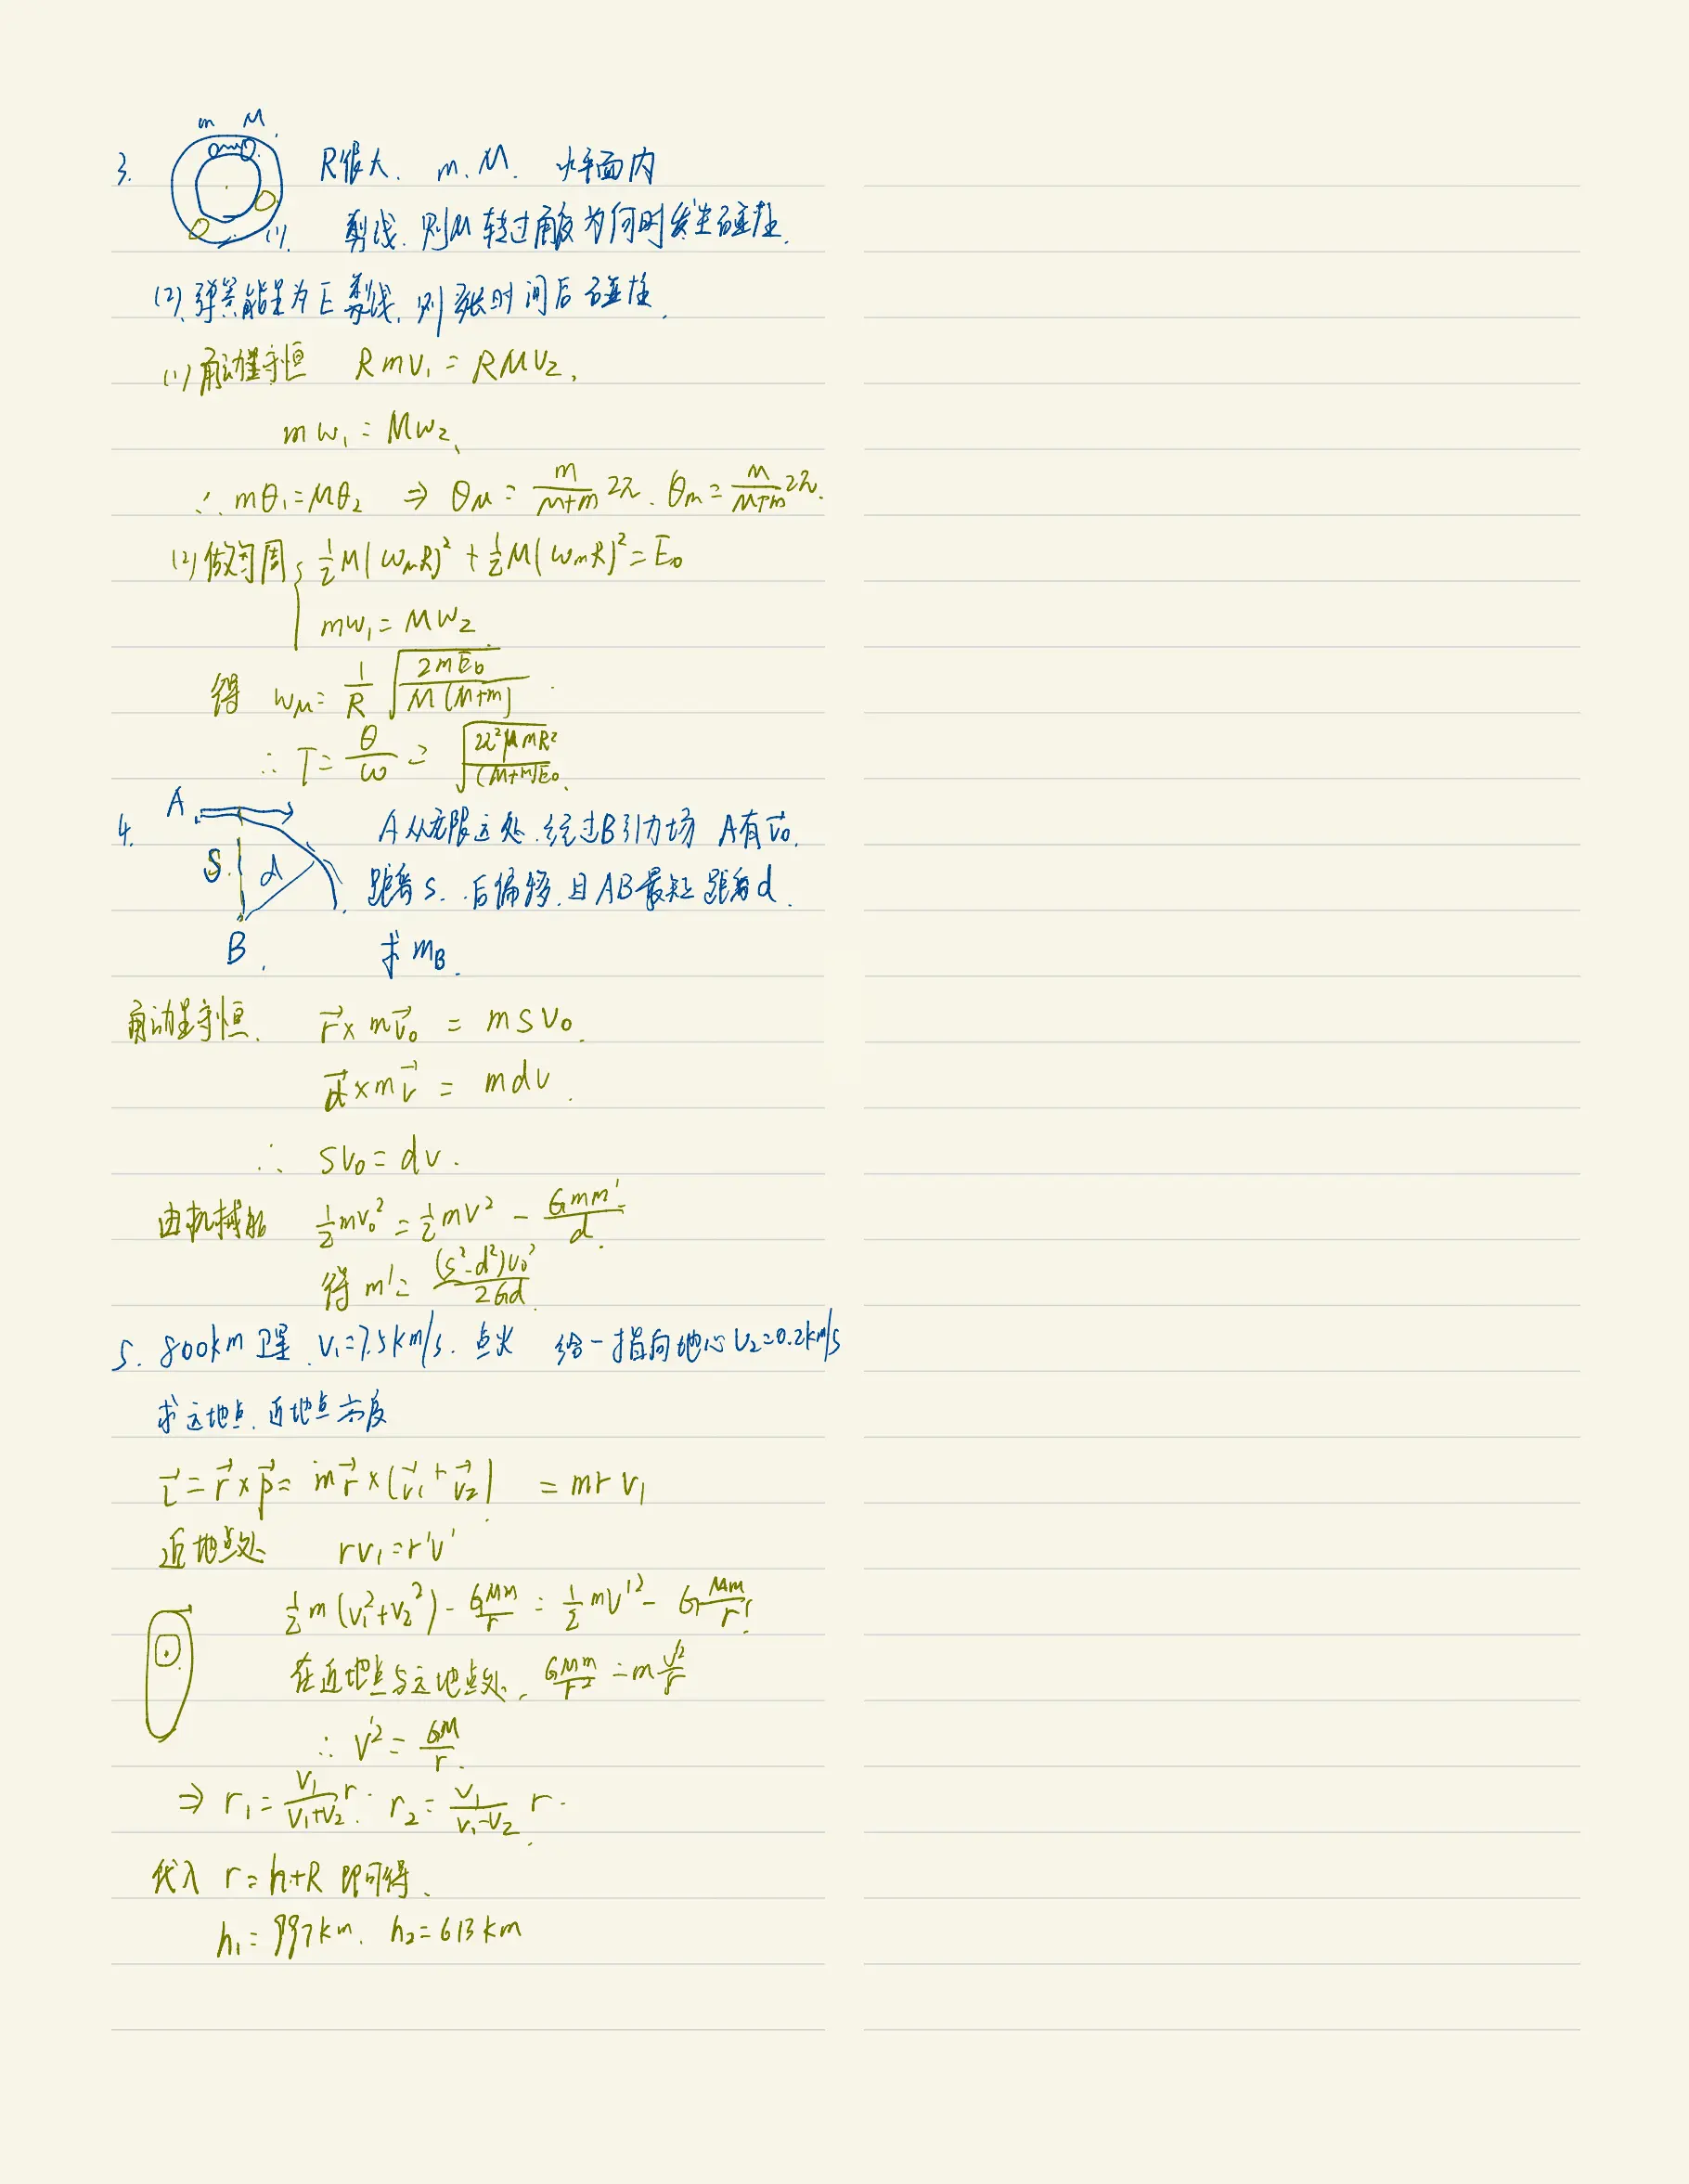 m M
3. R很大. m. M. 水平面内
(1). 剪线. 则M转过角度为何时发生碰撞.
(2). 弹簧能量为E 剪线, 则多长时间后碰撞.
(1) 角动量守恒 RmV₁ = RMV₂.
mω₁ = Mω₂.
∴ mθ₁ = Mθ₂ ⇒ θ_M = m/(M+m) 2π. θ_m = M/(M+m) 2π.
(2) 做匀周 { ½M(ω_M R)² + ½M(ω_m R)² = E₀
mω₁ = Mω₂
得 ω_M = 1/R √(2mE₀/(M(M+m)))
∴ T = θ/ω = √(2π²MmR²/((M+m)E₀))
A S d B
4. A从无限远处. 经过B引力场 A有v⃗₀.
距离s. 后偏移, 且AB最短距离d.
求m_B.
角动量守恒. r⃗×mv⃗₀ = msv₀.
d⃗×mv⃗ = mdv.
∴ sv₀ = dv.
由机械能 ½mv₀² = ½mv² - Gmm'/d.
得 m' = (s²-d²)v₀²/(2Gd).
5. 800km卫星. v₁=7.5km/s. 点火 给一指向地心v₂=0.2km/s
求远地点. 近地点高度
L⃗ = r⃗×p⃗ = mr⃗×(v⃗₁+v⃗₂) = mrv₁
近地点处 rv₁ = r'v'
½m(v₁²+v₂²) - GMm/r = ½mv'² - GMm/r'.
在近地点与远地点处. GMm/r² = mv²/r
∴ v'² = GM/r.
⇒ r₁ = v₁/(v₁+v₂) r. r₂ = v₁/(v₁-v₂) r.
代入 r=h+R 即可得.
h₁ = 997km. h₂ = 613km